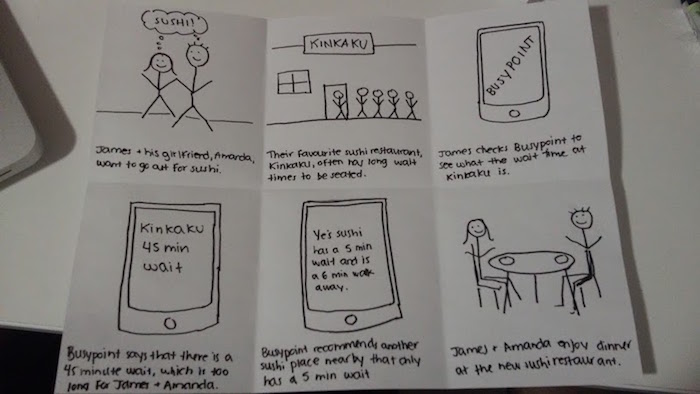 SUSHI!
James + his girlfriend, Amanda,
want to go out for sushi.
KINKAKU
Their favourite sushi restaurant,
Kinkaku, often has long wait
times to be seated.
BUSYPOINT
James checks Busypoint to
see what the wait time at
Kinkaku is.
Kinkaku
45 min
wait
Busypoint says that there is a
45 minute wait, which is too
long for James + Amanda.
Ye's sushi
has a 5 min
wait and is
a 6 min walk
away.
Busypoint recommends another
sushi place nearby that only
has a 5 min wait
James + Amanda enjoy dinner
at the new sushi restaurant.